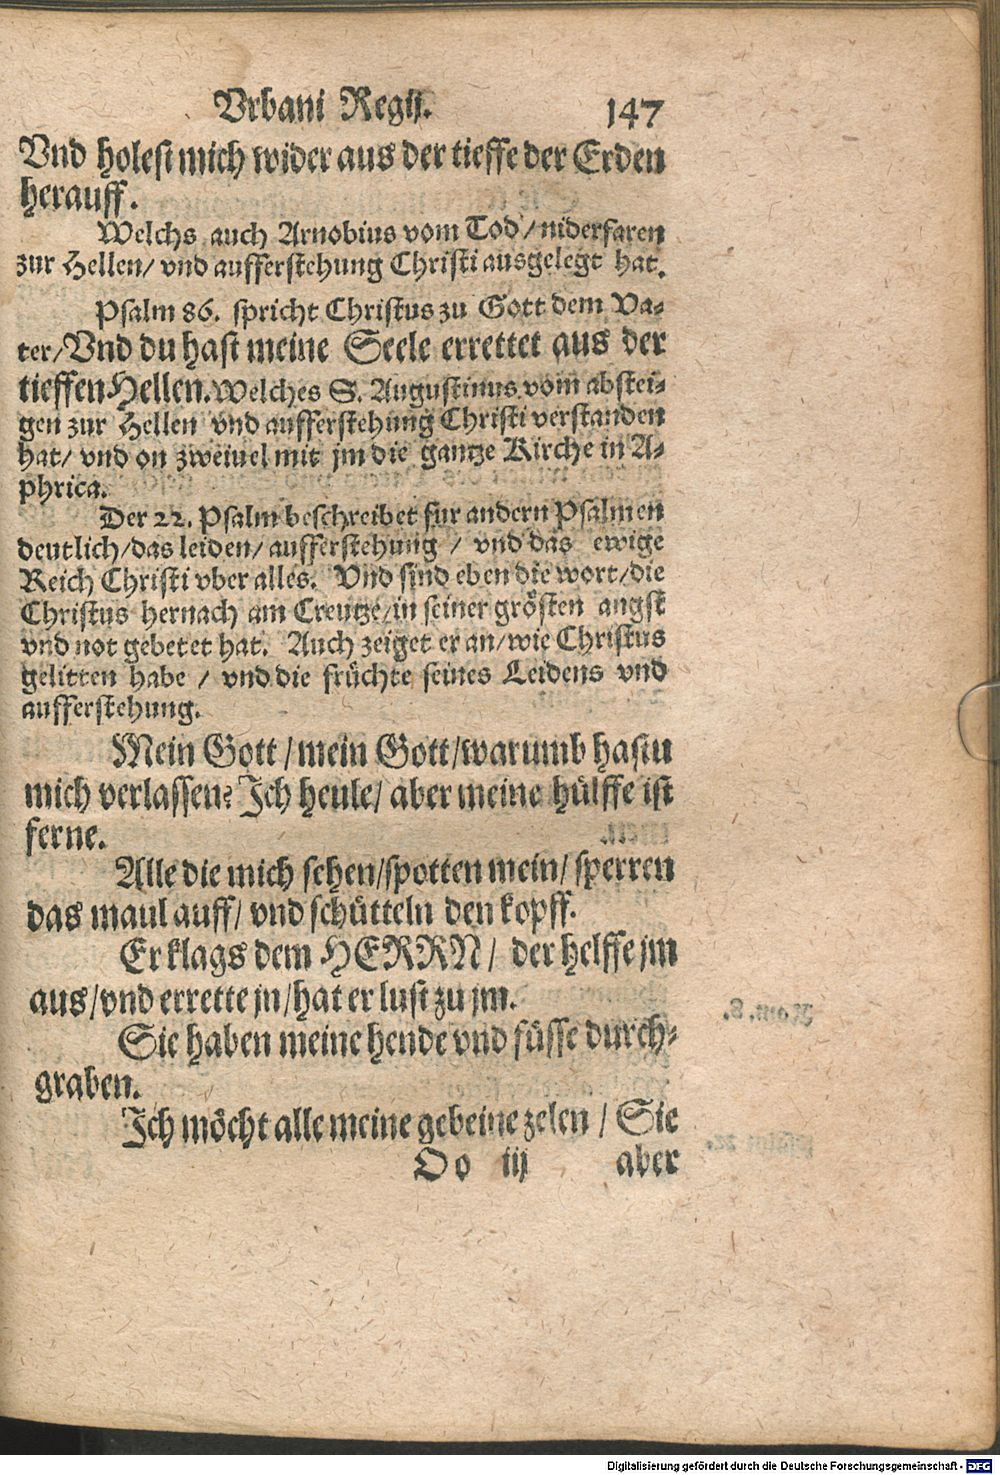 Vrbani Regij. 147
Vnd holest mich wider aus der tieffe der Erden
herauff.
Welchs auch Arnobius vom Tod / niderfaren
zur Hellen / vnd aufferstehung Christi ausgelegt hat.
Psalm 86. spricht Christus zu Gott dem Va-
ter / Vnd du hast meine Seele errettet aus der
tieffen Hellen. Welches S. Augustinus vom abstei-
gen zur Hellen vnd aufferstehung Christi verstanden
hat / vnd on zweiuel mit jm die gantze Kirche in A-
phrica.
Der 22. Psalm beschreibet fur andern Psalmen
deutlich / das leiden / aufferstehung / vnd das ewige
Reich Christi vber alles. Vnd sind eben die wort / die
Christus hernach am Creutze / in seiner grösten angst
vnd not gebetet hat. Auch zeiget er an / wie Christus
gelitten habe / vnd die früchte seines Leidens vnd
aufferstehung.
Mein Gott / mein Gott / warumb hastu
mich verlassen? Ich heule / aber meine hülffe ist
ferne.
Alle die mich sehen / spotten mein / sperren
das maul auff / vnd schütteln den kopff.
Er klags dem HERRN / der helffe jm
aus / vnd errette jn / hat er lust zu jm.
Sie haben meine hende vnd füsse durch-
graben.
Ich möcht alle meine gebeine zelen / Sie
Oo iij aber
Digitalisierung gefördert durch die Deutsche Forschungsgemeinschaft - DFG